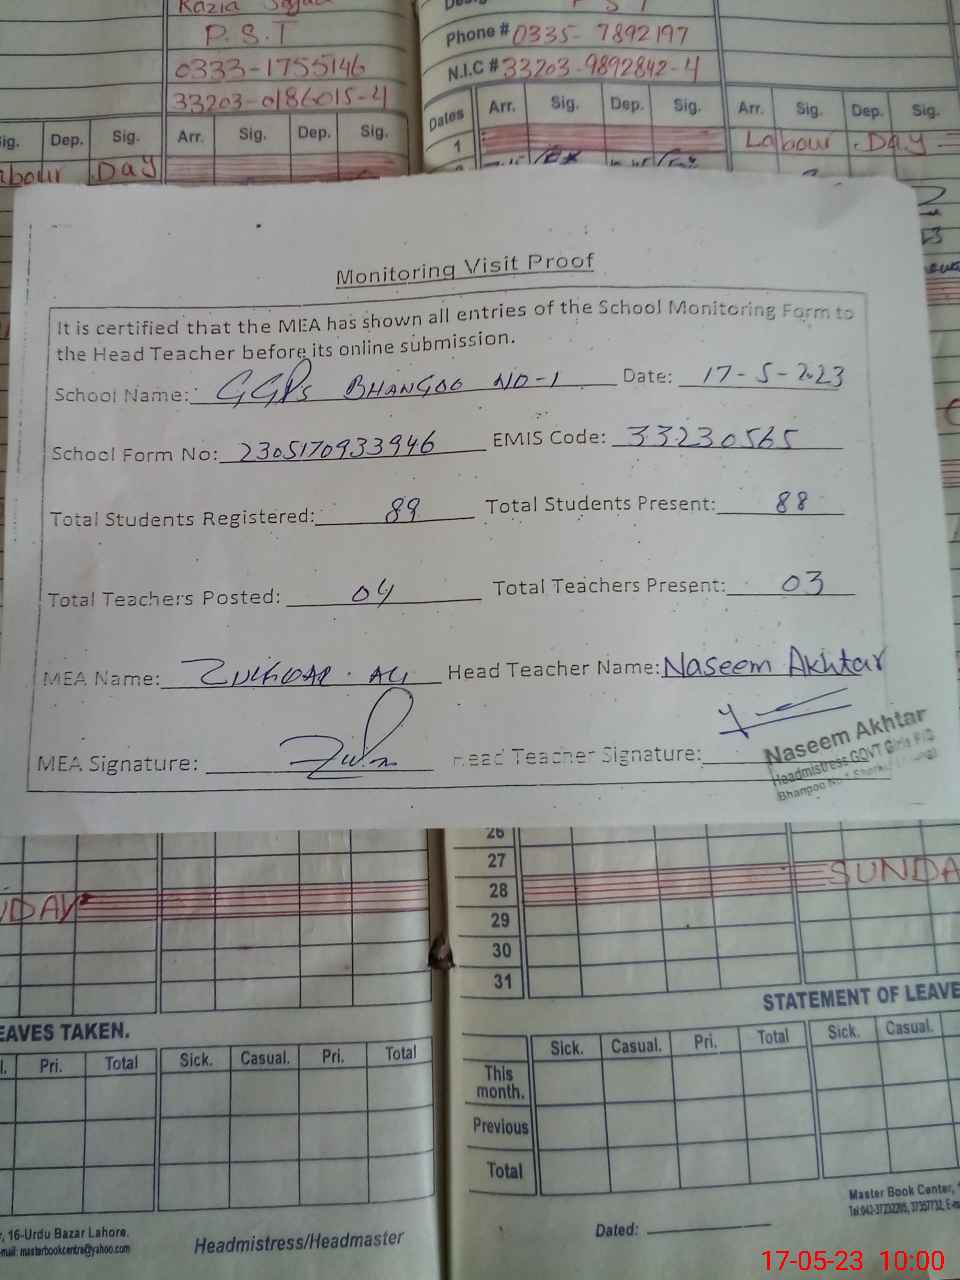 P.S.T
0333-1755146
33203-0186015-4
Phone # 0335-7892197
N.I.C # 33203-9892842-4
Sig. Dep. Sig. Arr. Sig. Dep. Sig.
Dates Arr. Sig. Dep. Sig. Arr. Sig. Dep. Sig.
1 Labour DAY
Day
Monitoring Visit Proof
It is certified that the MEA has shown all entries of the School Monitoring Form to
the Head Teacher before its online submission.
School Name: GGPS BHANGOO NO-1 Date: 17-5-2023
School Form No: 2305170933946 EMIS Code: 33230565
Total Students Registered: 89 Total Students Present: 88
Total Teachers Posted: 04 Total Teachers Present: 03
MEA Name: ALI Head Teacher Name: Naseem Akhtar
MEA Signature: Head Teacher Signature:
Naseem Akhtar
Headmistress GOVT Girls P/S
Bhangoo
26
27
28 SUNDA
NDAY
29
30
31
EAVES TAKEN.
STATEMENT OF LEAVE
l. Pri. Total Sick. Casual. Pri. Total
Sick. Casual. Pri. Total Sick. Casual.
This
month.
Previous
Total
, 16-Urdu Bazar Lahore.
mail: masterbookcentre@yahoo.com
Headmistress/Headmaster
Dated:
Master Book Center,
17-05-23 10:00